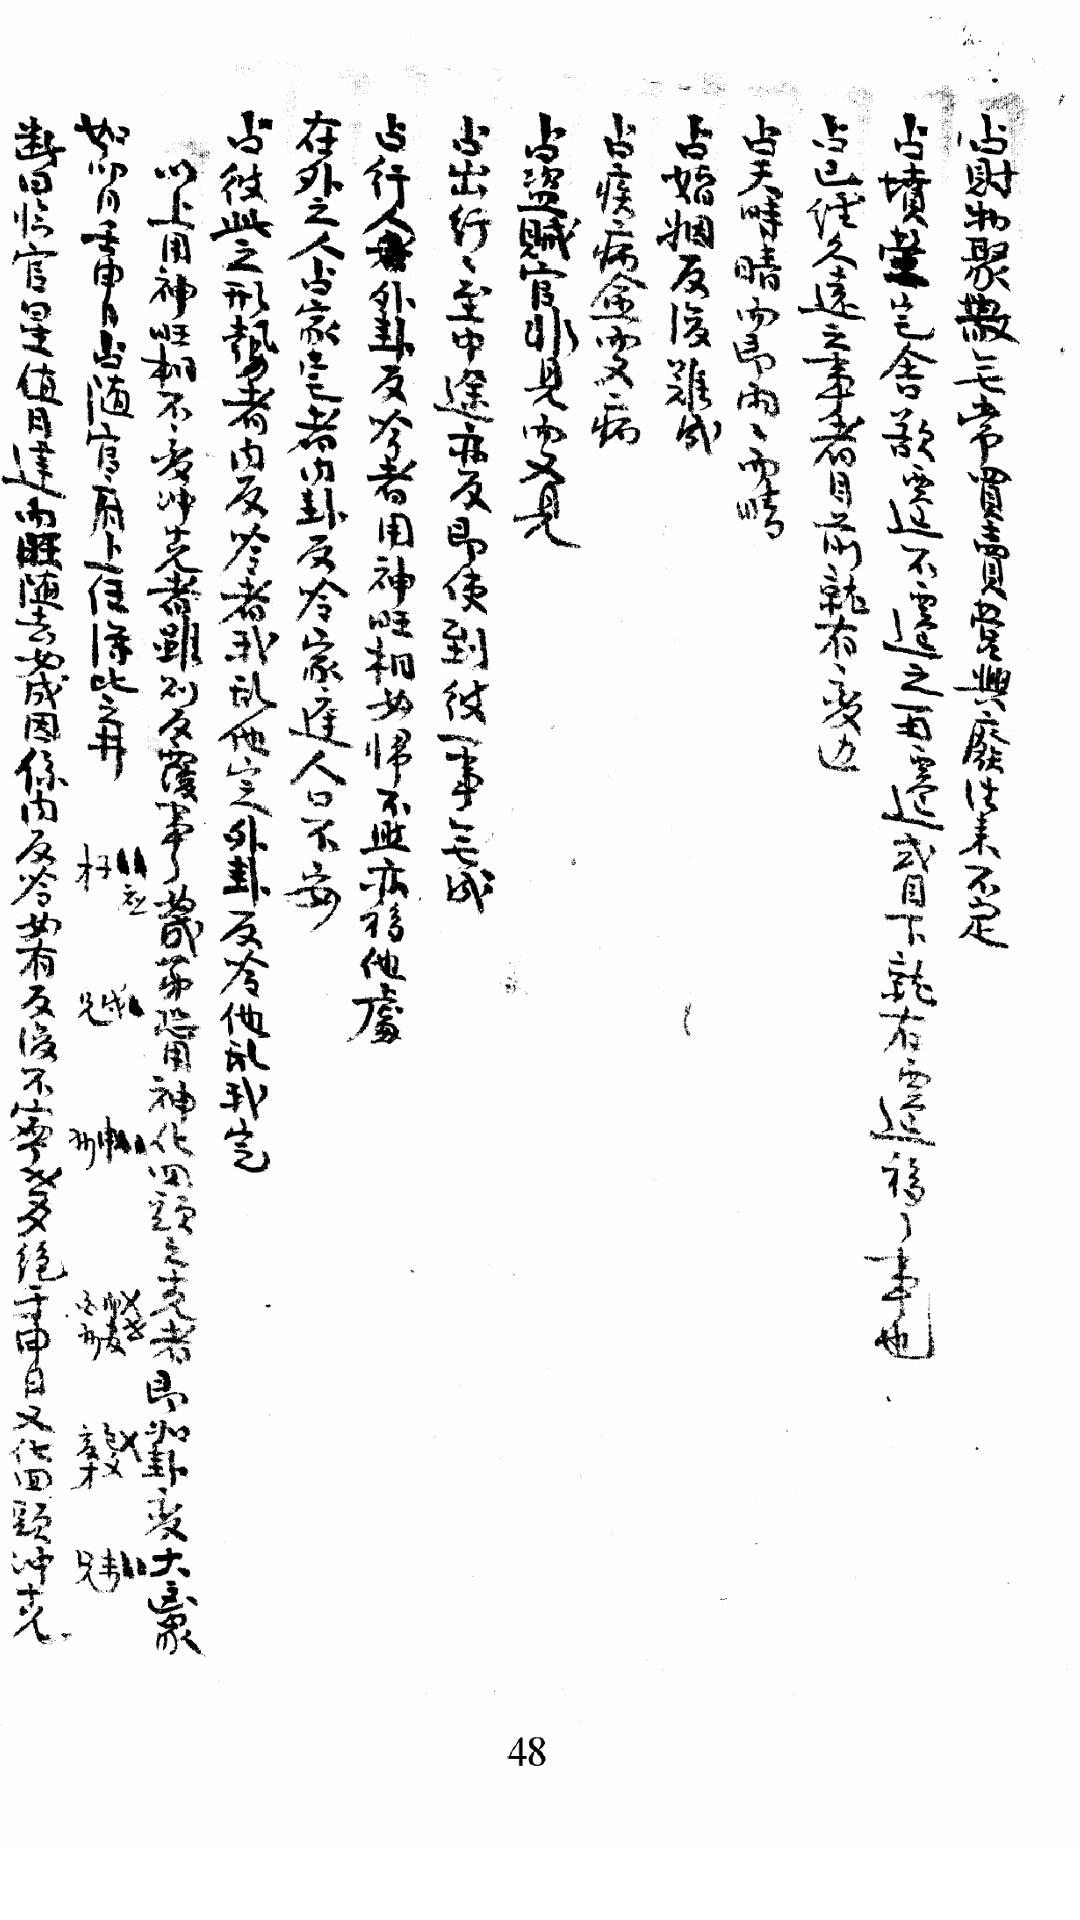 占財物聚散無常買賣當興廢徃来不定
占墳塋宅舍欲遷不遷之再遷或目下就有遷移了事也
占已経久遠之事者目前就有变迁
占天時晴而即雨雨而晴
占婚姻反復難成
占疾病愈而又病
占盜賊官非見而又見
占出行行至中途亦反即使到彼一事无成
占行人外卦反吟者用神旺相必帰不然亦移他處
在外之人占家宅者内卦反吟家庭人口不安
占彼此之形勢者内反吟者我乱他定外卦反吟他乱我定
以上用神旺相不変冲克者雖则反覆事了成第恐用神化回頭之克者即如卦变大象
如卯月壬申日占随官府上任得比之井
才子應
兄戌
申
父
兄未
断曰官星值月建而旺随去必成因係内反吟必有反復不寧絕于申日又化回頭冲克
48